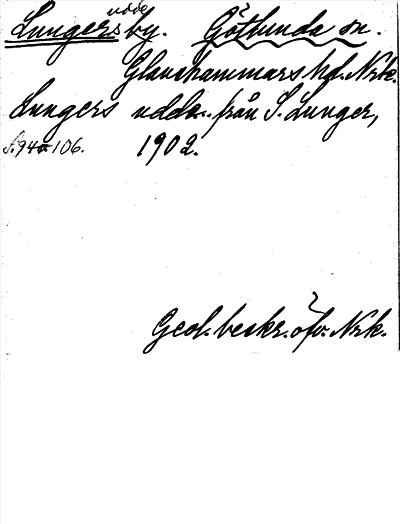 Lungers udde by. Götlunda sn.
Glanshammars hd. Nrke.
Lungers udde.. från S. Lunger,
s. 94 o 106. 1902.
Geol. beskr. öfv. Nrk.